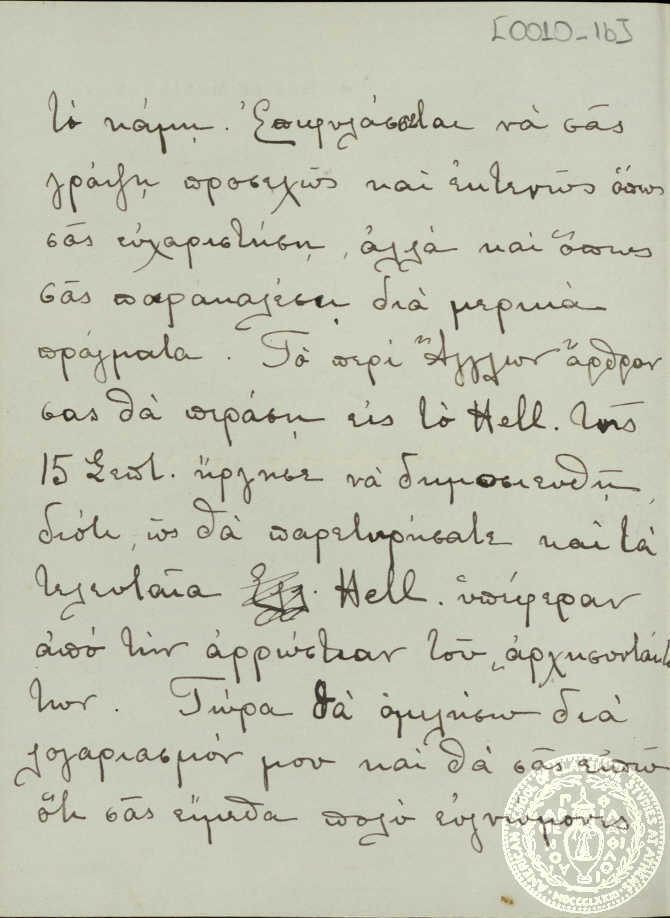 [0010-1b]
τὸ κάμῃ. Ἐπιφυλάσσεται νὰ σᾶς
γράψῃ προσεχῶς καὶ ἐκτενῶς ὅπως
σᾶς εὐχαριστήσῃ, ἀλλὰ καὶ ὅπως
σᾶς παρακαλέσῃ διὰ μερικὰ
πράγματα. Τὸ περὶ Ἄγγλων ἄρθρον
σας θὰ περάσῃ εἰς τὸ Hell. τῆς
15 Σεπτ. ἤργησε νὰ δημοσιευθῇ,
διότι, ὡς θὰ παρετηρήσατε καὶ τὰ
τελευταῖα Hell. ὑπέφεραν
ἀπὸ τὴν ἀρρώστιαν τοῦ „ἀρχησυντάκ
των. Τώρα θὰ ὁμιλήσω διὰ
λογαριασμόν μου καὶ θὰ σᾶς εἰπῶ
ὅτι σᾶς εἴμεθα πολὺ εὐγνώμονες
AMERICAN SCHOOL OF CLASSICAL STUDIES AT ATHENS
MDCCCLXXXI